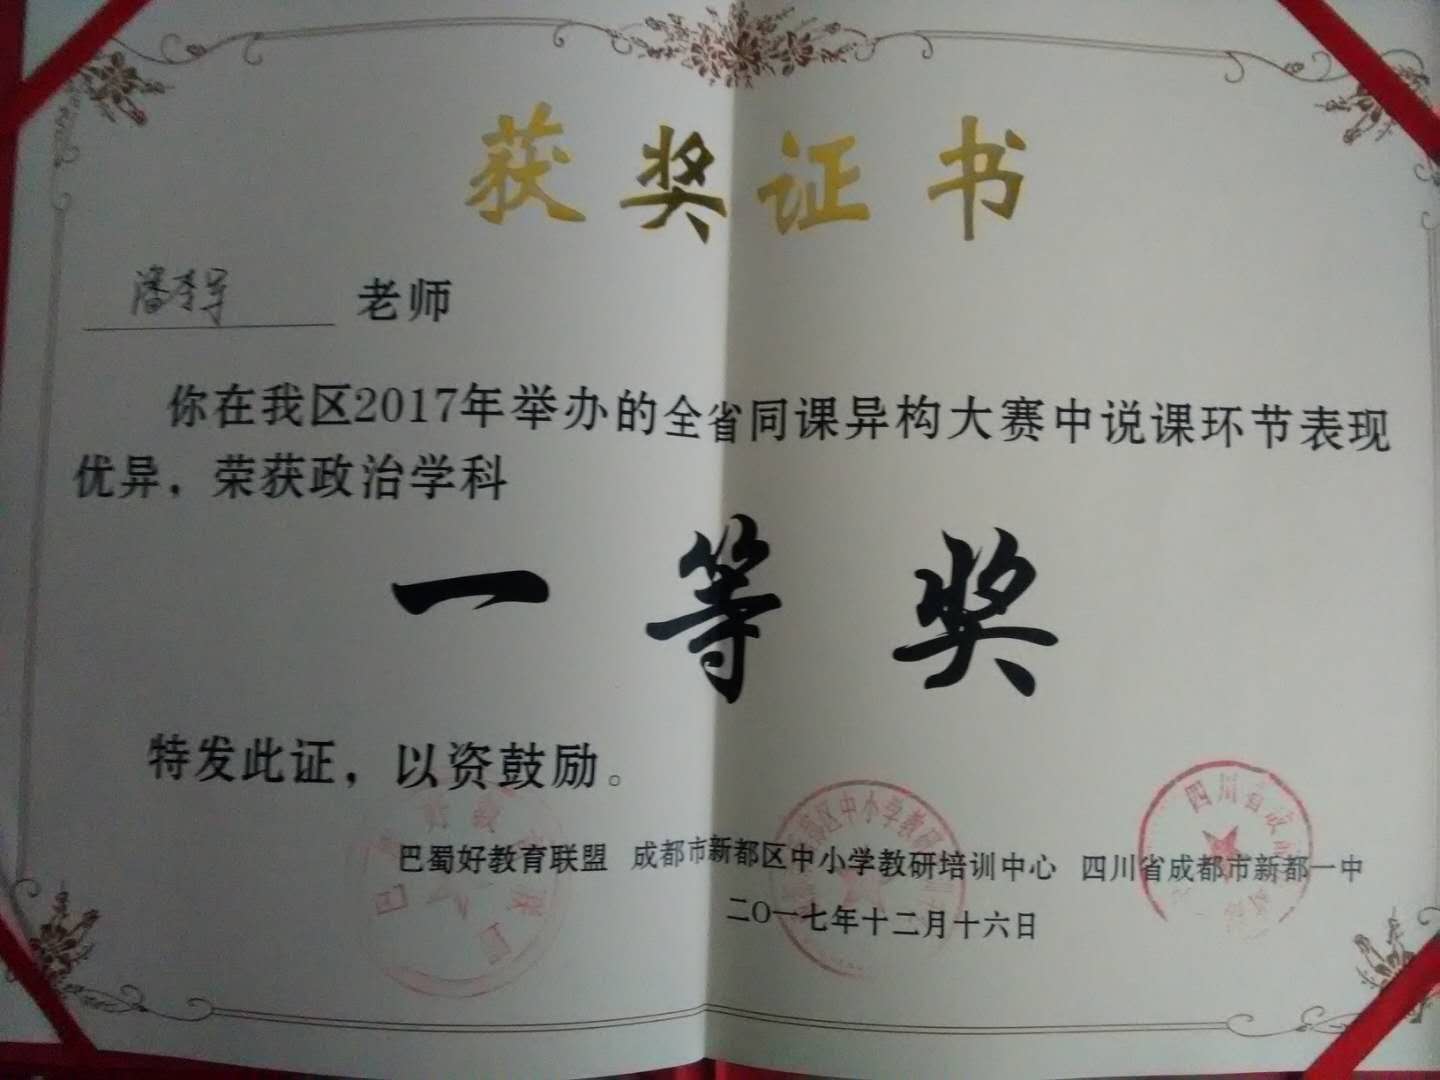 获奖证书
潘李军 老师
你在我区2017年举办的全省同课异构大赛中说课环节表现
优异，荣获政治学科
一等奖
特发此证，以资鼓励。
巴蜀好教育联盟 成都市新都区中小学教研培训中心 四川省成都市新都一中
二〇一七年十二月十六日